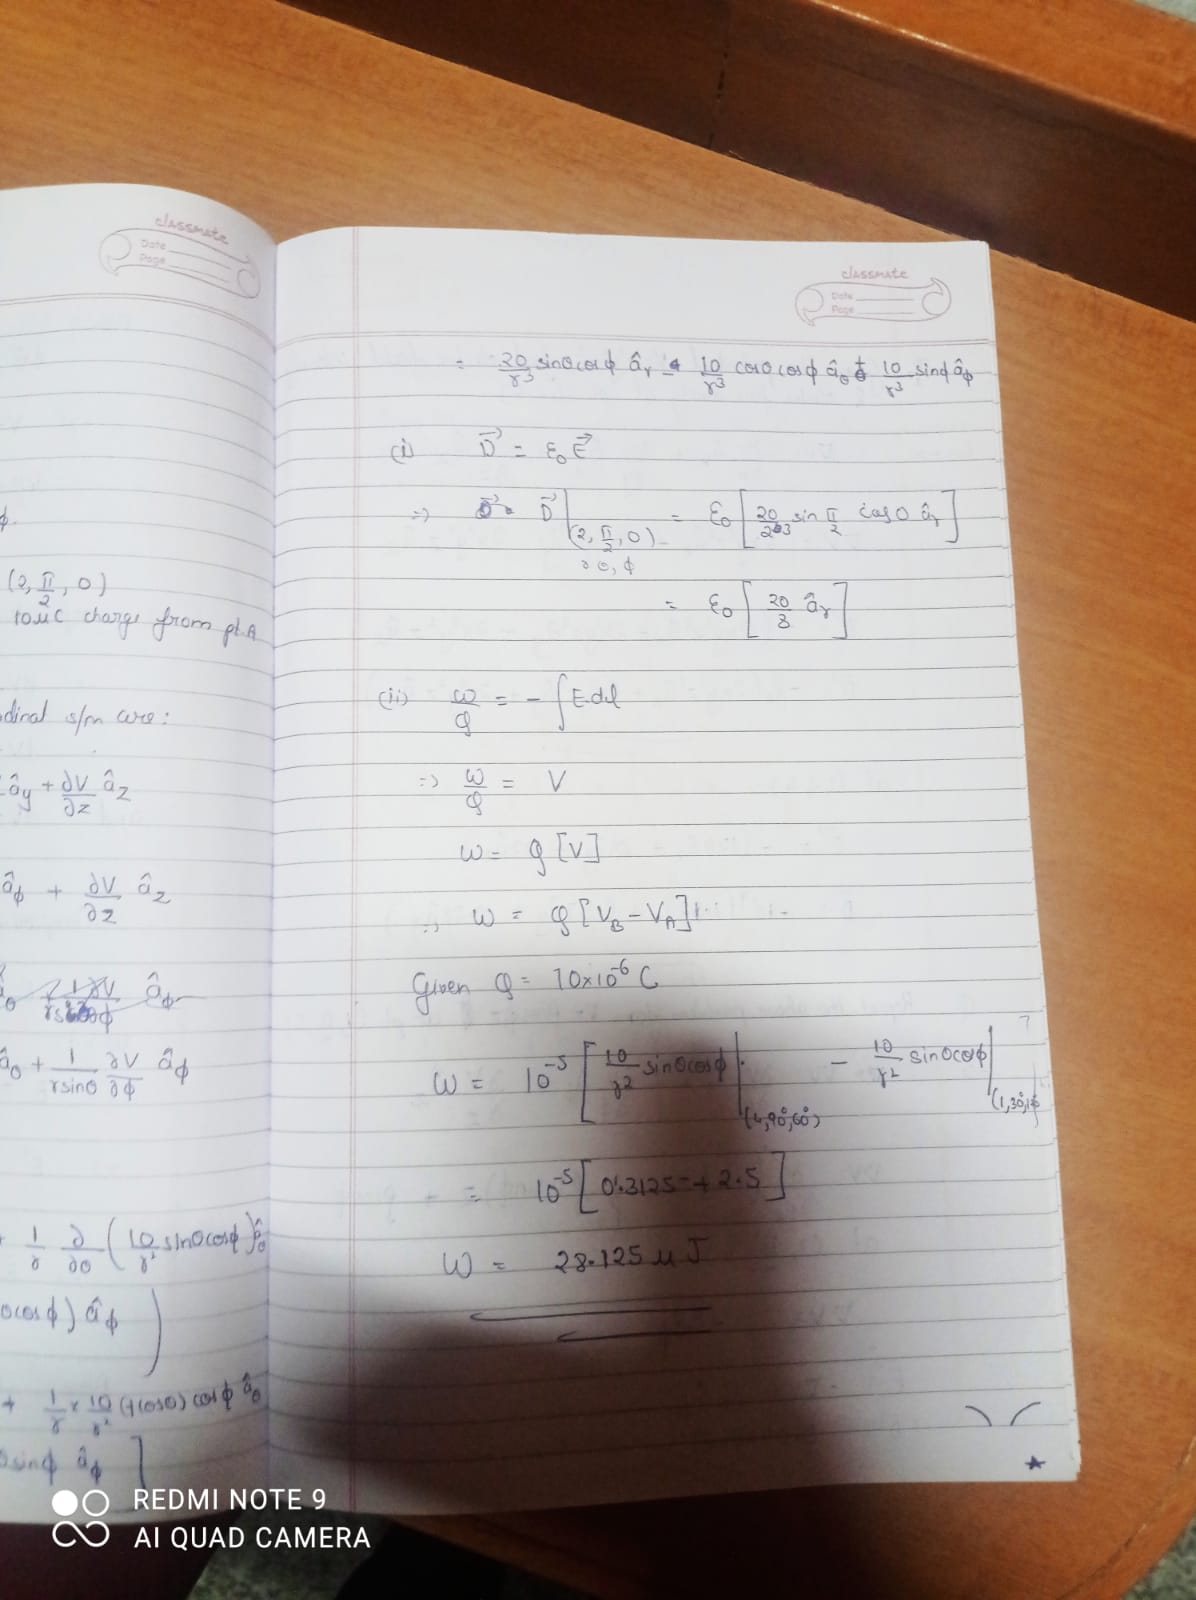 classmate
Date
Page
φ.
(2, π/2, 0)
10μC charge from pt.A
dinal s/m are:
ây + ∂V/∂z âz
âφ + ∂V/∂z âz
âθ + 1/(r sinθ) ∂V/∂φ âφ
1/r ∂/∂θ (10/r² sinθcosφ) âθ
θcosφ) âφ )
+ 1/r × 10/r² (+cosθ) cosφ âθ
sinφ âφ ]
classmate
Date
Page
= 20/r³ sinθcosφ âr - 10/r³ cosθcosφ âθ + 10/r³ sinφ âφ
(i) D⃗ = ε₀E⃗
=> D⃗ |(2, π/2, 0) = ε₀ [20/2³ sin π/2 cos0 âr]
r θ, φ
= ε₀ [20/8 âr]
(ii) W/Q = - ∫E.dl
=> W/Q = V
W = Q [V]
∴ W = Q [VB - VA]
Given Q = 10×10⁻⁶ C
W = 10⁻⁵ [10/r² sinθcosφ |(4,90°,60°) - 10/r² sinθcosφ |(1,30°,
= 10⁻⁵ [0.3125 + 2.5]
W = 28.125 μJ
REDMI NOTE 9
AI QUAD CAMERA